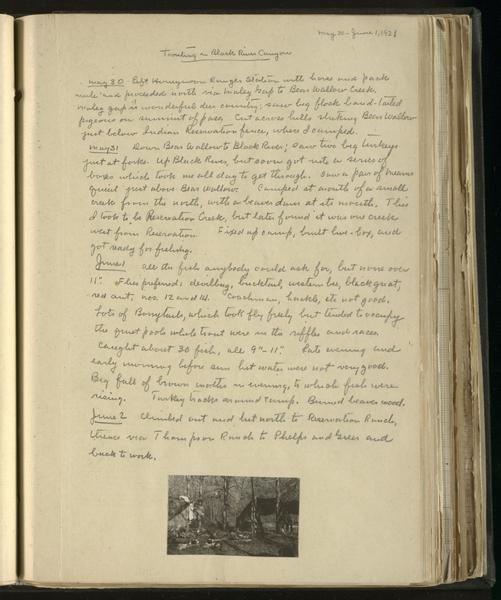 May 30 - June 1, 1921
Trouting in Black River Canyon
May 30 Left Honeymoon Ranger Station with horse and pack
mule and proceeded north via Maley Gap to Bear Wallow Creek.
Maley gap is wonderful deer country; saw big flock band-tailed
pigeons on summit of pass. Cut across hills striking Bear Wallow
just below Indian Reservation fence, where I camped.
May 31 Down Bear Wallow to Black River; saw two big turkeys
just at forks. Up Black River, but soon got into a series of
boxes which took me all day to get through. Saw a pair of Mearns
quail just above Bear Wallow. Camped at mouth of a small
creek from the north, with a beaver dam at its mouth. This
I took to be Reservation Creek, but later found it was one creek
west from Reservation. Fixed up camp, built live-box, and
got ready for fishing.
June 1 all the fish anybody could ask for, but none over
11". Flies preferred; devilbug, bucktail, western bee, black gnat,
red ant, nos. 12 and 14. Coachman, hackle, etc not good.
Lots of Bonytails, which took fly freely but tended to occupy
the quiet pools while trout were in the riffles and races.
Caught about 30 fish, all 9"-11". Late evening and
early morning before sun hit water were not very good.
Big fall of brown moths in evening, to which fish were
rising. Turkey tracks around camp. Burned beaver wood.
June 2 Climbed out and hit north to Reservation Ranch,
thence via Thompson Ranch to Phelps and Greer and
back to work.